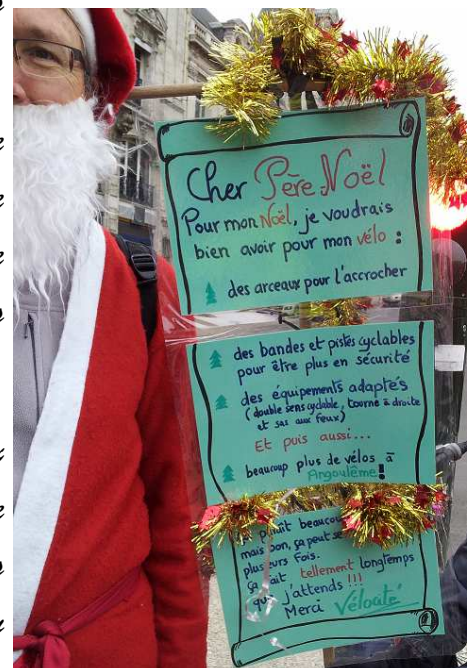 Cher Père Noël
Pour mon Noël, je voudrais
bien avoir pour mon vélo :
des arceaux pour l'accrocher
des bandes et pistes cyclables
pour être plus en sécurité
des équipements adaptés
(double sens cyclable, tourne à droite
et sas aux feux)
Et puis aussi...
beaucoup plus de vélos à
Angoulême !
beaucou
mais bon, ça peut se
plusieurs fois.
ça fait tellement longtemps
que j'attends !!!
Merci Véloaté